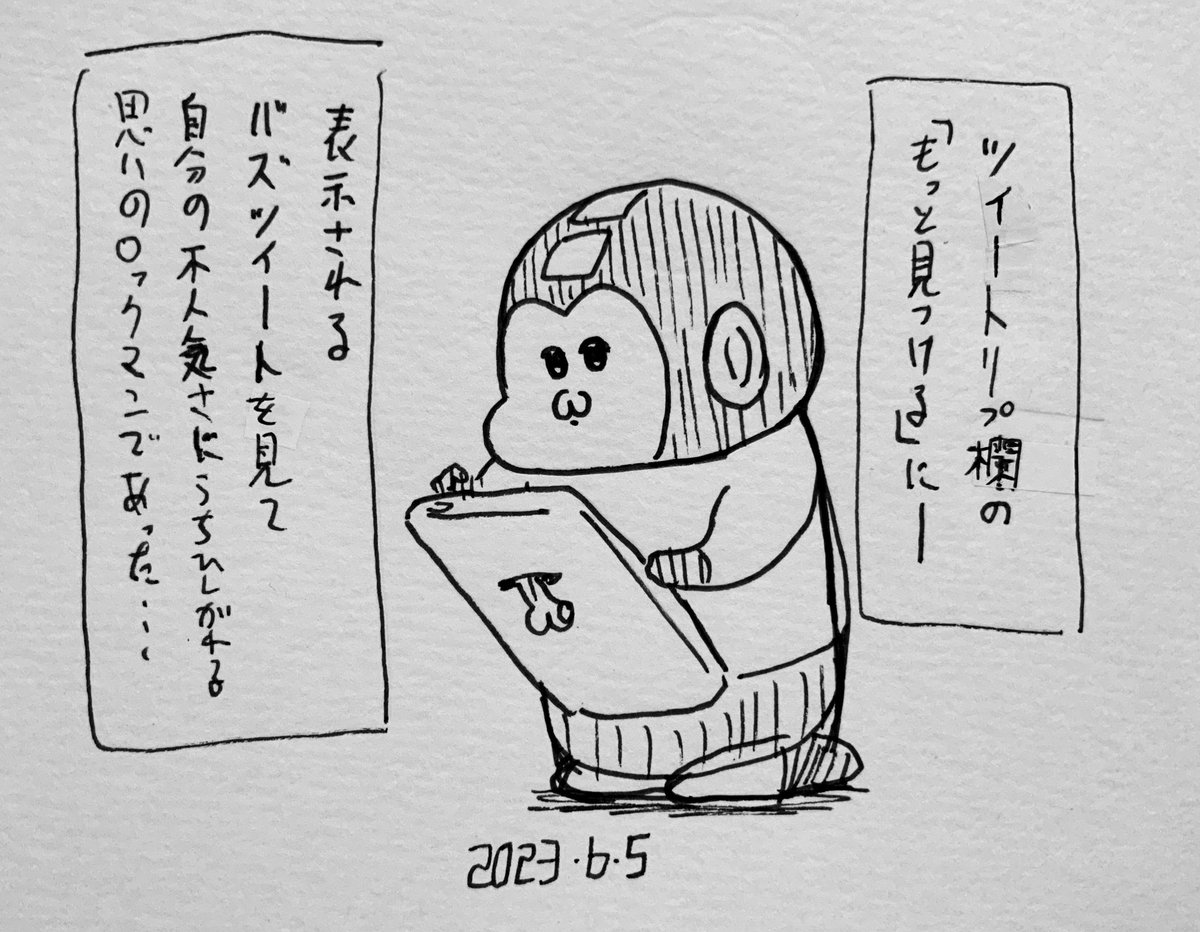 ツイートリプ欄の
「もっと見つける」にー
表示される
バズツイートを見て
自分の不人気さにうちひしがれる
思いのロックマンであった…
2023.6.5